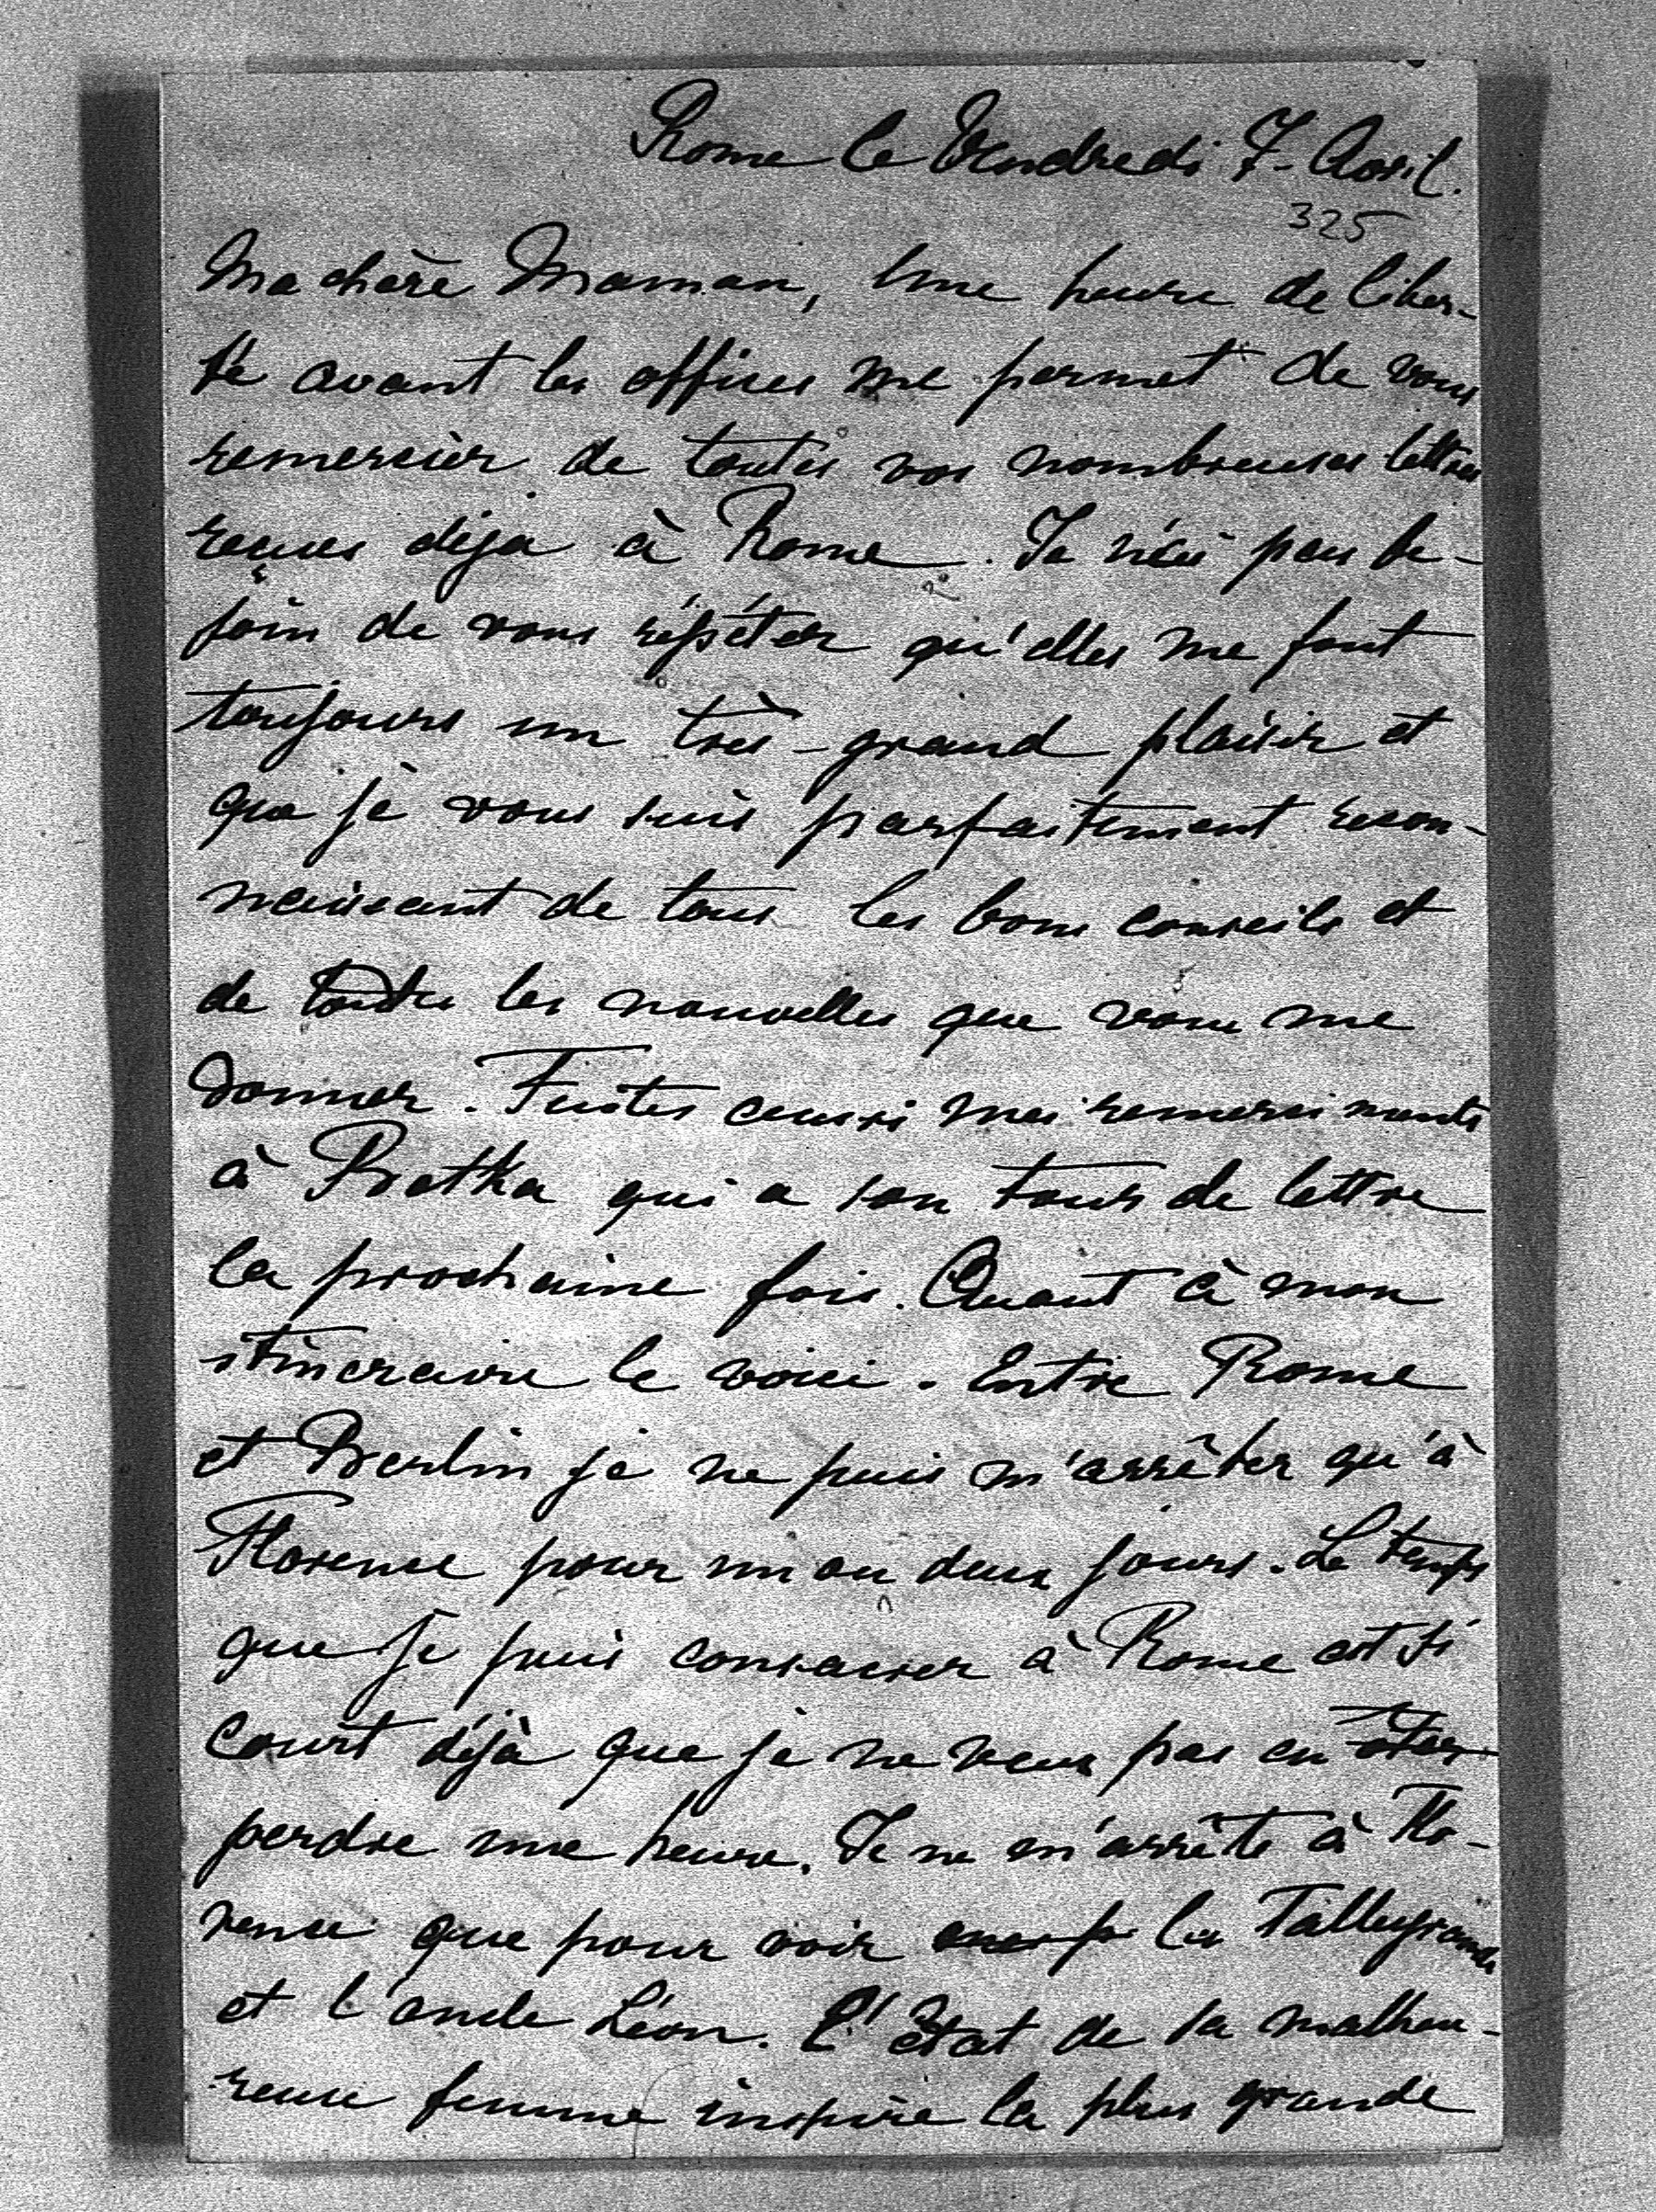 Rome le Vendredi 7. Avril.
325
Ma chère Maman, Une heure de liber-
té avant les offices me permet de vous
remercier de toutes vos nombreuses lettres
reçues déja à Rome. Je n'ai pas be-
soin de vous répéter qu'elles me font
toujours un très-grand plaisir et
que je vous suis parfaitement recon-
naissant de tous les bons conseils et
de toutes les nouvelles que vous me
donner. Faites aussi mes remerciments
à Bratka qui a son tour de lettre
la prochaine fois. Quant à mon
itineraire le voici. Entre Rome
et Berlin je ne puis m'arrêter qu'à
Florence pour un ou deux jours. Le temps
que je puis consacrer à Rome est si
court déjà que je ne veux pas en ôter
perdre une heure. Je ne m'arrête à Flo-
rence que pour voir les Talleyrand
et l'oncle Léon. L'état de sa malheu-
reuse femme inspire la plus grande